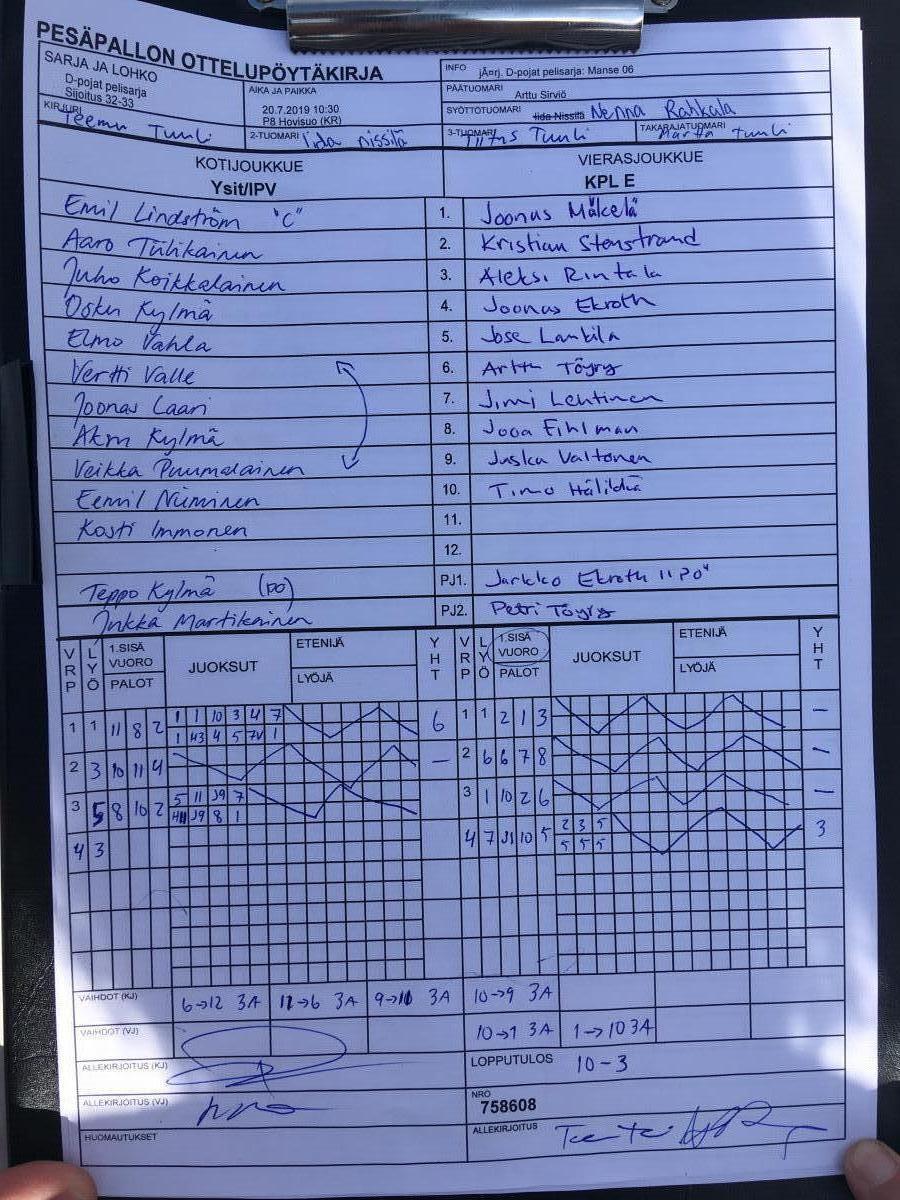 PESÄPALLON OTTELUPÖYTÄKIRJA
SARJA JA LOHKO
D-pojat pelisarja
Sijoitus 32-33
AIKA JA PAIKKA
20.7.2019 10:30
P8 Hovisuo (KR)
INFO jÄ¤rj. D-pojat pelisarja: Manse 06
PÄÄTUOMARI Arttu Sirviö
SYÖTTÖTUOMARI Iida Nissilä Nenna Rahkala
KIRJURI Teemu Tuuli
2-TUOMARI Iida Nissilä
3-TUOMARI Tiitus Tuuli
TAKARAJATUOMARI Martta Tuuli
KOTIJOUKKUE
Ysit/IPV
VIERASJOUKKUE
KPL E
Emil Lindström "C" 1. Joonas Mäkelä
Aaro Tulikainen 2. Kristian Stenstrand
Juho Koikkalainen 3. Aleksi Rintala
Osku Kylmä 4. Joonas Ekroth
Elmo Vahla 5. Jose Lankila
Vertti Valle 6. Arttu Töyry
Joonas Laari 7. Jimi Lehtinen
Akm Kylmä 8. Jooa Fihlman
Veikka Puumalainen 9. Juska Valtonen
Eemil Niiminen 10. Timo
Kosti Immonen 11.
12.
Teppo Kylmä (po) PJ1. Jarkko Ekroth "PO"
Jukka Martikainen PJ2. Petri Töyry
VRP LYÖ 1.SISÄ VUORO PALOT JUOKSUT ETENIJÄ LYÖJÄ YHT VRP LYÖ 1.SISÄ VUORO PALOT JUOKSUT ETENIJÄ LYÖJÄ YHT
1 1 11 8 2 1 1 10 3 4 7 6 1 1 2 1 3 –
1 43 4 5 7V 1
2 3 10 11 4 – 2 6 6 7 8 –
3 5 8 10 2 5 11 J9 7 3 1 10 2 6 –
J9 8 1
4 3 4 7 J1 10 5 2 3 5 3
5 5 5
VAIHDOT (KJ) 6→12 3A 12→6 3A 9→10 3A 10→9 3A
VAIHDOT (VJ) 10→1 3A 1→10 3A
ALLEKIRJOITUS (KJ)
LOPPUTULOS 10-3
ALLEKIRJOITUS (VJ)
NRO
758608
HUOMAUTUKSET
ALLEKIRJOITUS